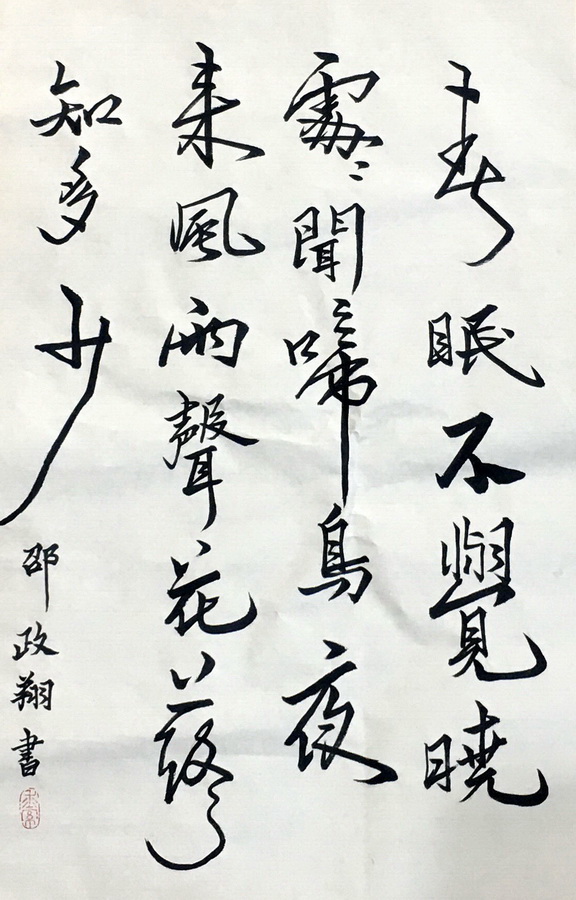 春眠不覺曉
處〻聞啼鳥夜
来風雨聲花落
知多少
邵政翔書